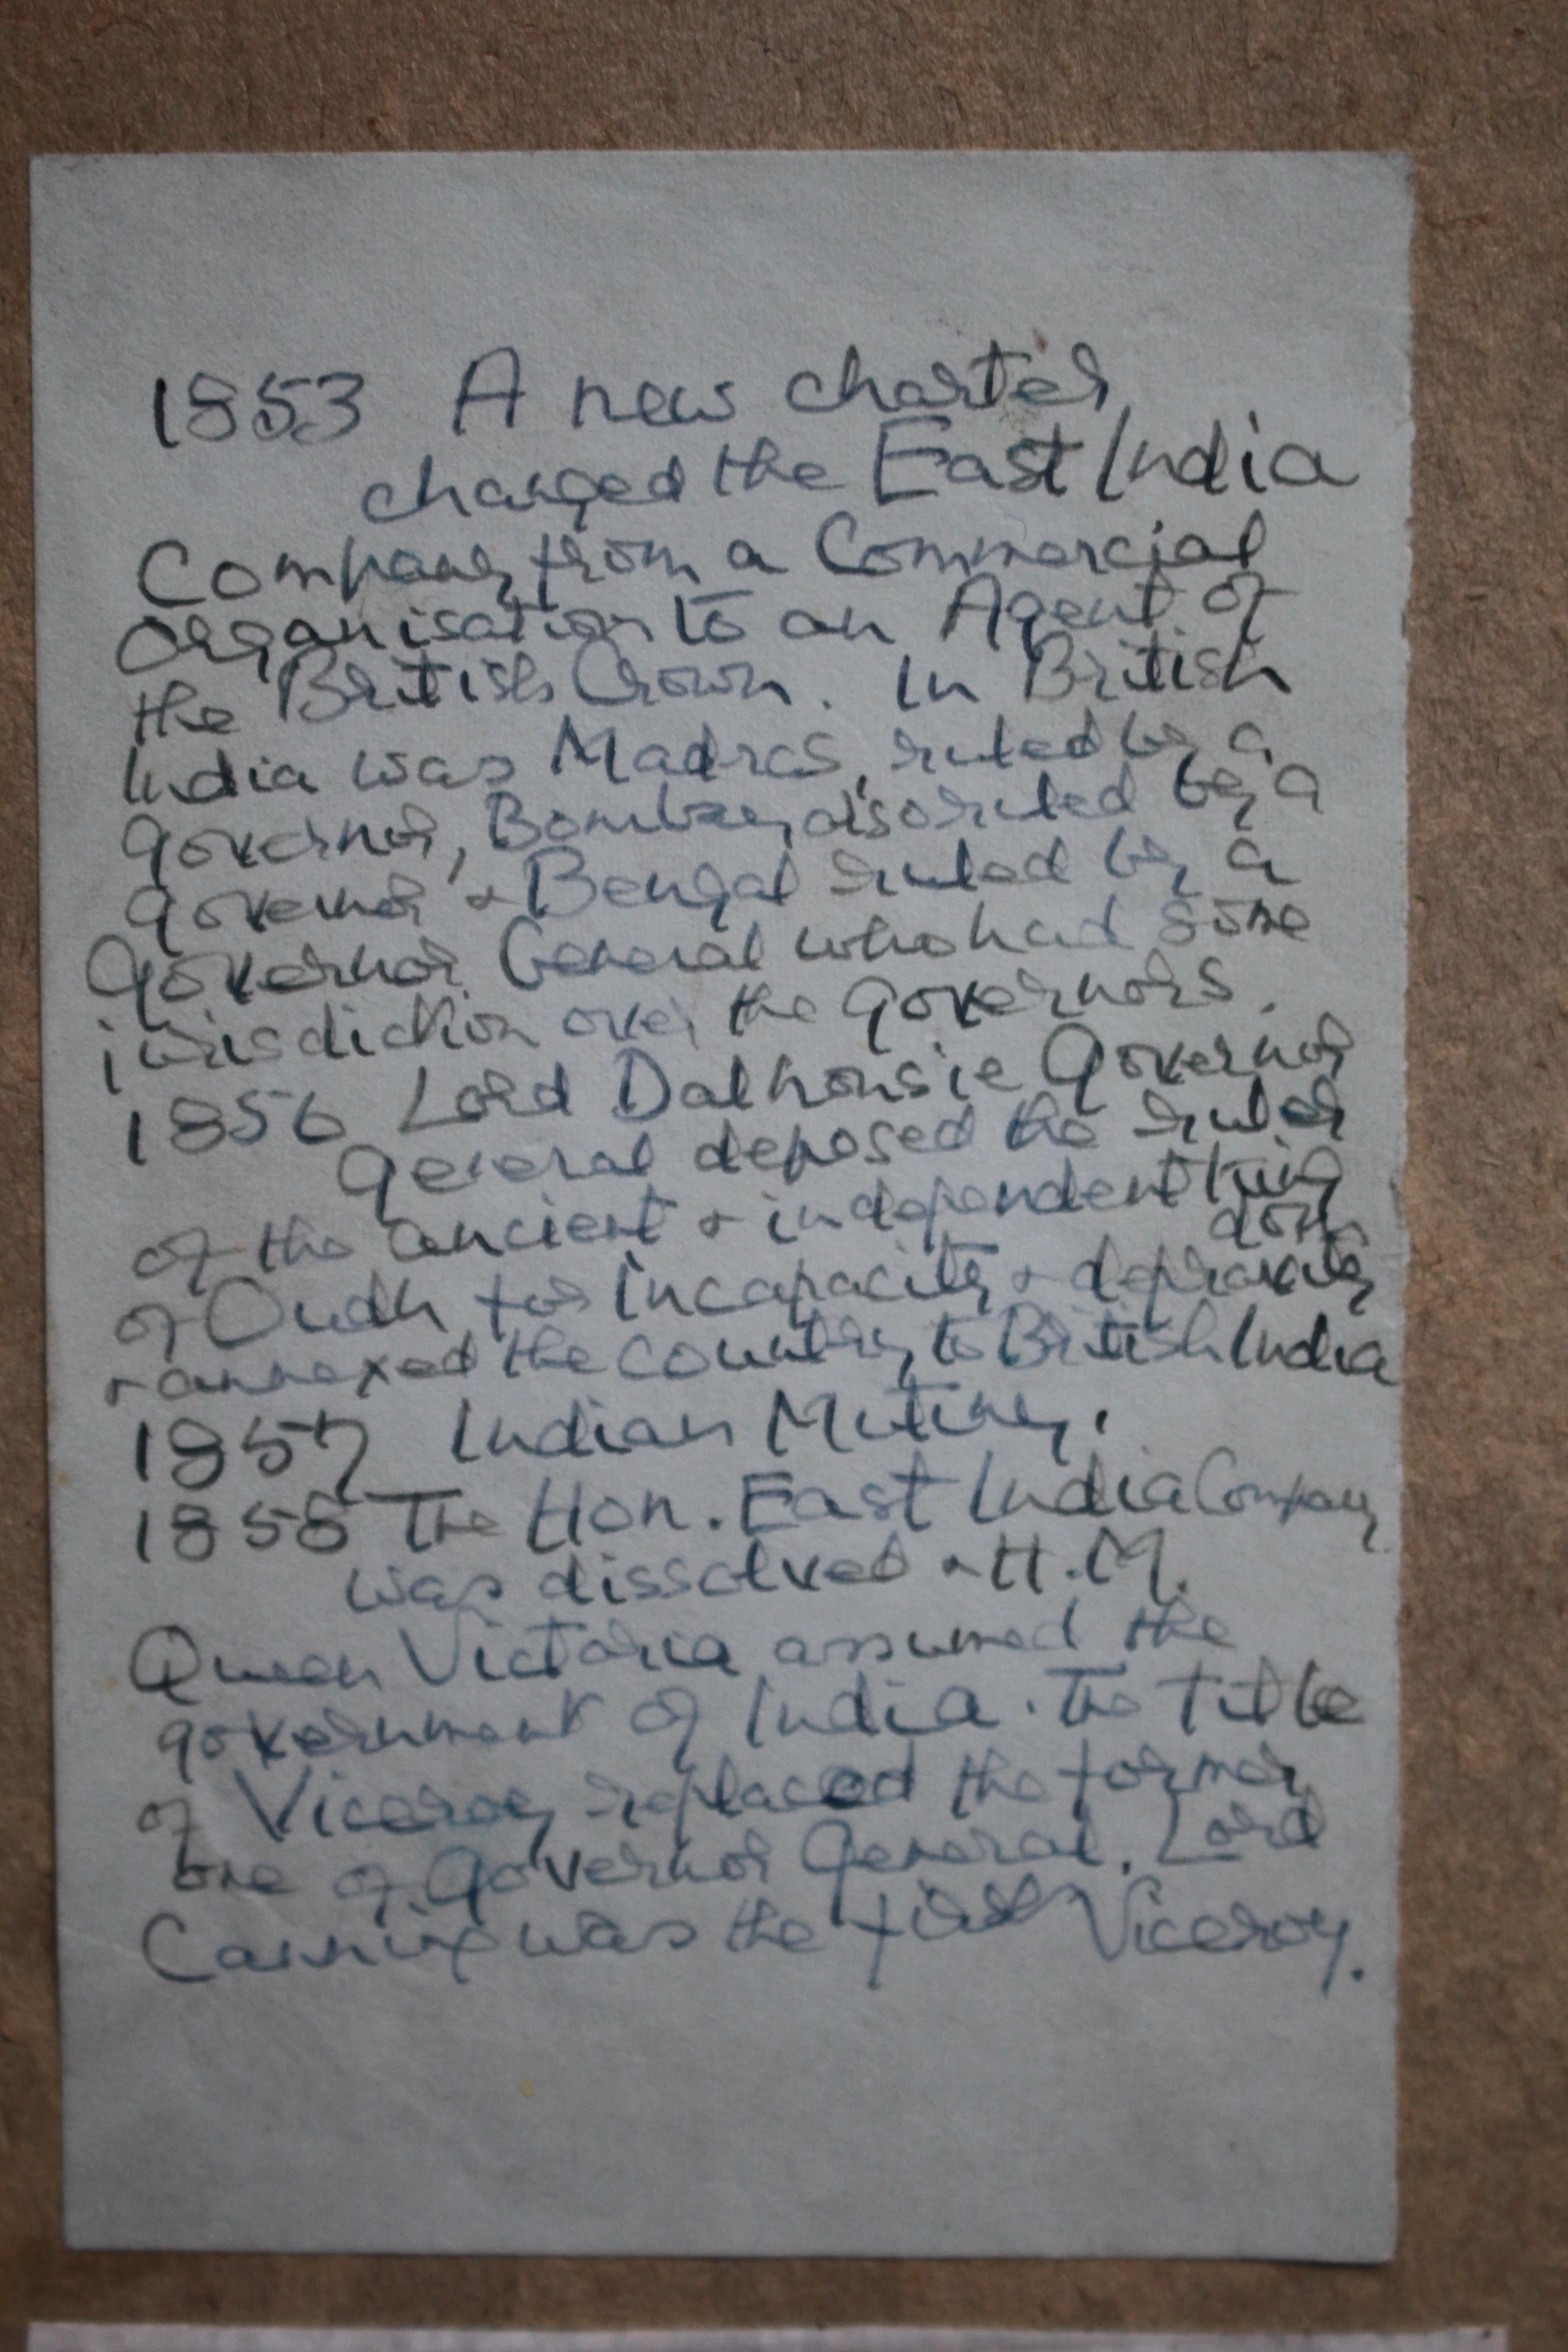 1853 A new charter
changed the East India
Company from a Commercial
Organisation to an Agent of
the British Crown. In British
India was Madras, ruled by a
Governor, Bombay also ruled by a
Governor & Bengal ruled by a
Governor General who had some
jurisdiction over the Governors.
1856 Lord Dalhousie Governor
General deposed the ruler
of the ancient & independent King
dom
of Oudh for Incapacity & depravity
& annexed the country to British India
1857 Indian Mutiny.
1858 The Hon. East India Company
was dissolved & H.M.
Queen Victoria assumed the
government of India. The title
of Viceroy replaced the former
one of Governor General. Lord
Canning was the first Viceroy.